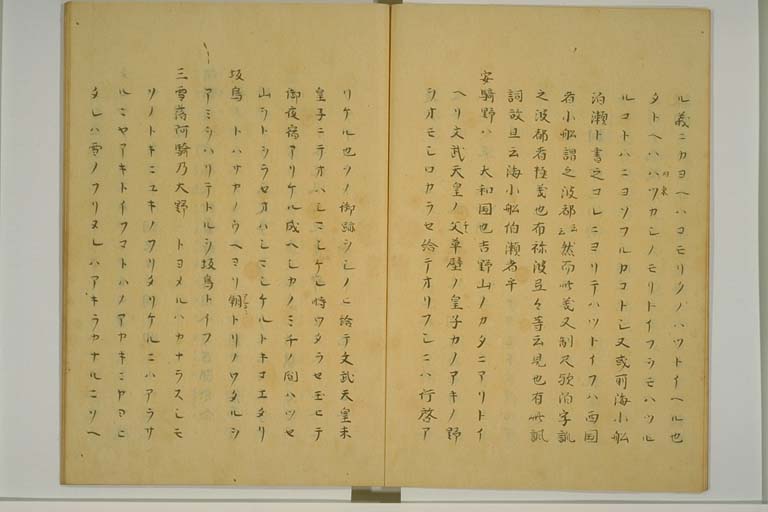 ル義ニカヨヘハコモリクノハツトイヘル也
タトヘハハツカシノモリトイフラシモハツル
ルコトハニヨソフルカコトシ又或所海小船
泊瀬ト書之コレニヨリテハツトイフハ西国
者小船謂之波都云云然而此義又制尺歌泊字訓
之波都者種義也布祢波豆々等云見也有此訓
詞故且云海小船伯瀬者乎
安騎野ハ 大和国也吉野山ノカタニアリトイ
ヘリ文武天皇ノ父草壁ノ皇子カノアキノ野
ヲオモシロカラセ給テオリフシニハ行啓ア
リケル也ソノ御跡ヲシノヒ給テ文武天皇未
皇子ニテオハシマシケル時ワタラセ玉ヒテ
御夜宿アリケル成ヘシカノミチノ間ハツセ
山ラトヲラセオハシマシケルトキコエタリ
坂鳥 トハサカノウヘヨリ朝トリノワタルヲ
アミヲハリテトルヲ坂鳥トイフ
三雪落阿騎乃大野 トヨメルハカナラスシモ
ソノトキニユキノフリタリケルニハアラサ
ルニヤアキトイフコトハノアカキニカヨヒ
タレハ雪ノフリヌレハアキラカナルニソヘ